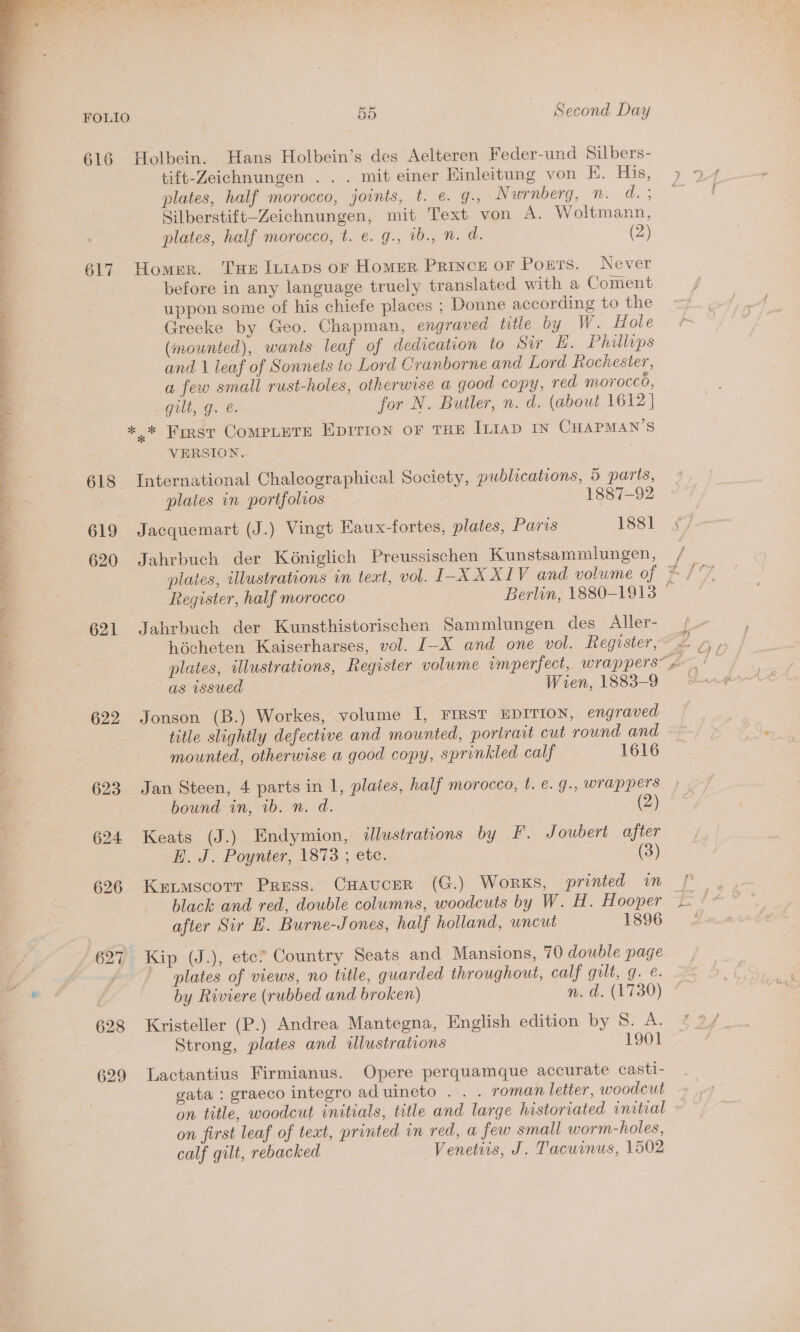 FOLIO 55 Second Day
616 Holbein. Hans Holbein's des Aelteren Feder-und Silbers-
tift-Zeichnungen . . . mit einer Einleitung von E. His,
plates, half morocco, joints, t. e. g., Nurnberg, n. d. ;
Silberstift-Zeichnungen, mit Text von A. Woltmann,
plates, half morocco, t. e. g., ib., n. d. (2)
617 Homer. The Iliads of Homer Prince of Poets. Never
before in any language truely translated with a Coment
uppon some of his chiefe places ; Donne according to the
Greeke by Geo. Chapman, engraved title by W. Hole
(mounted), wants leaf of dedication to Sir E. Phillips
and 1 leaf of Sonnets to Lord Cranborne and Lord Rochester,
a few small rust-holes, otherwise a good copy, red morocco,
gilt, g. e. for N. Butler, n. d. (about 1612]
*** First Complete Edition of the Iliad in Chapman's
version.
618 International Chalcographical Society, publications, 5 parts,
plates in portfolios 1887-92
619 Jacquemart (J.) Vingt Eaux-fortes, plates, Paris 1881
620 Jahrbuch der Königlich Preussischen Kunstsammlungen,
plates, illustrations in text, vol. I-XXXIV and volume of
Register, half morocco Berlin, 1880-1913
621 Jahrbuch der Kunsthistorischen Sammlungen des Aller-
höcheten Kaiserharses, vol. I-X and one vol. Register,
plates, illustrations, Register volume imperfect, wrappers
as issued Wien, 1883-9
622 Jonson (B.) Workes, volume I, first edition, engraved
title slightly defective and mounted, portrait cut round and
mounted, otherwise a good copy, sprinkled calf 1616
623 Jan Steen, 4 parts in 1, plates, half morocco, t. e. g., wrappers
bound in, ib. n. d. (2)
624 Keats (J.) Endymion, illustrations by F. Joubert after
E. J. Poynter, 1873 ; etc. (3)
626 Kelmscott Press. Chaucer (G.) Works, printed in
black and red, double columns, woodcuts by W. H. Hooper
after Sir E. Burne-Jones, half holland, uncut 1896
627 Kip (J.), etc. Country Seats and Mansions, 70 double page
plates of views, no title, guarded throughout, calf gilt, g. e.
by Riviere (rubbed and broken) n. d. (1730)
628 Kristeller (P.) Andrea Mantegna, English edition by S. A.
Strong, plates and illustrations 1901
629 Lactantius Firmianus. Opere perquamque accurate casti-
gata : graeco integro aduineto . . . roman letter, woodcut
on title, woodcut initials, title and large historiated initial
on first leaf of text, printed in red, a few small worm-holes,
calf gilt, rebacked Venetiis, J. Tacuinus, 1502